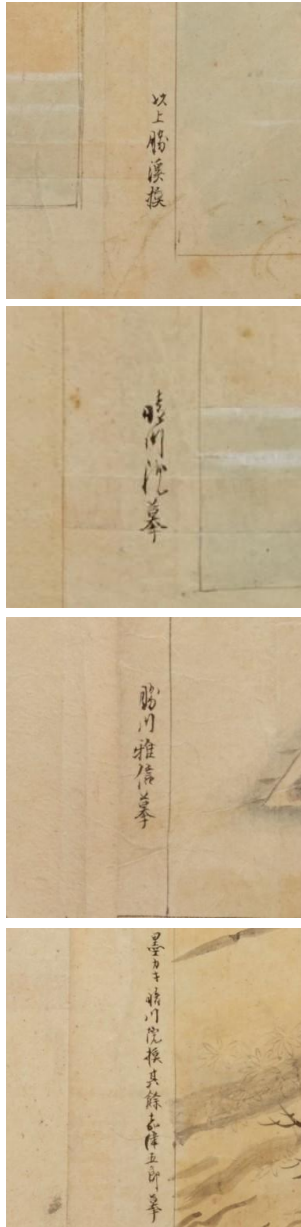 以上勝溪摸
晴川院摹
勝川雅信摹
墨カキ晴川院摸其餘志津五郎摹